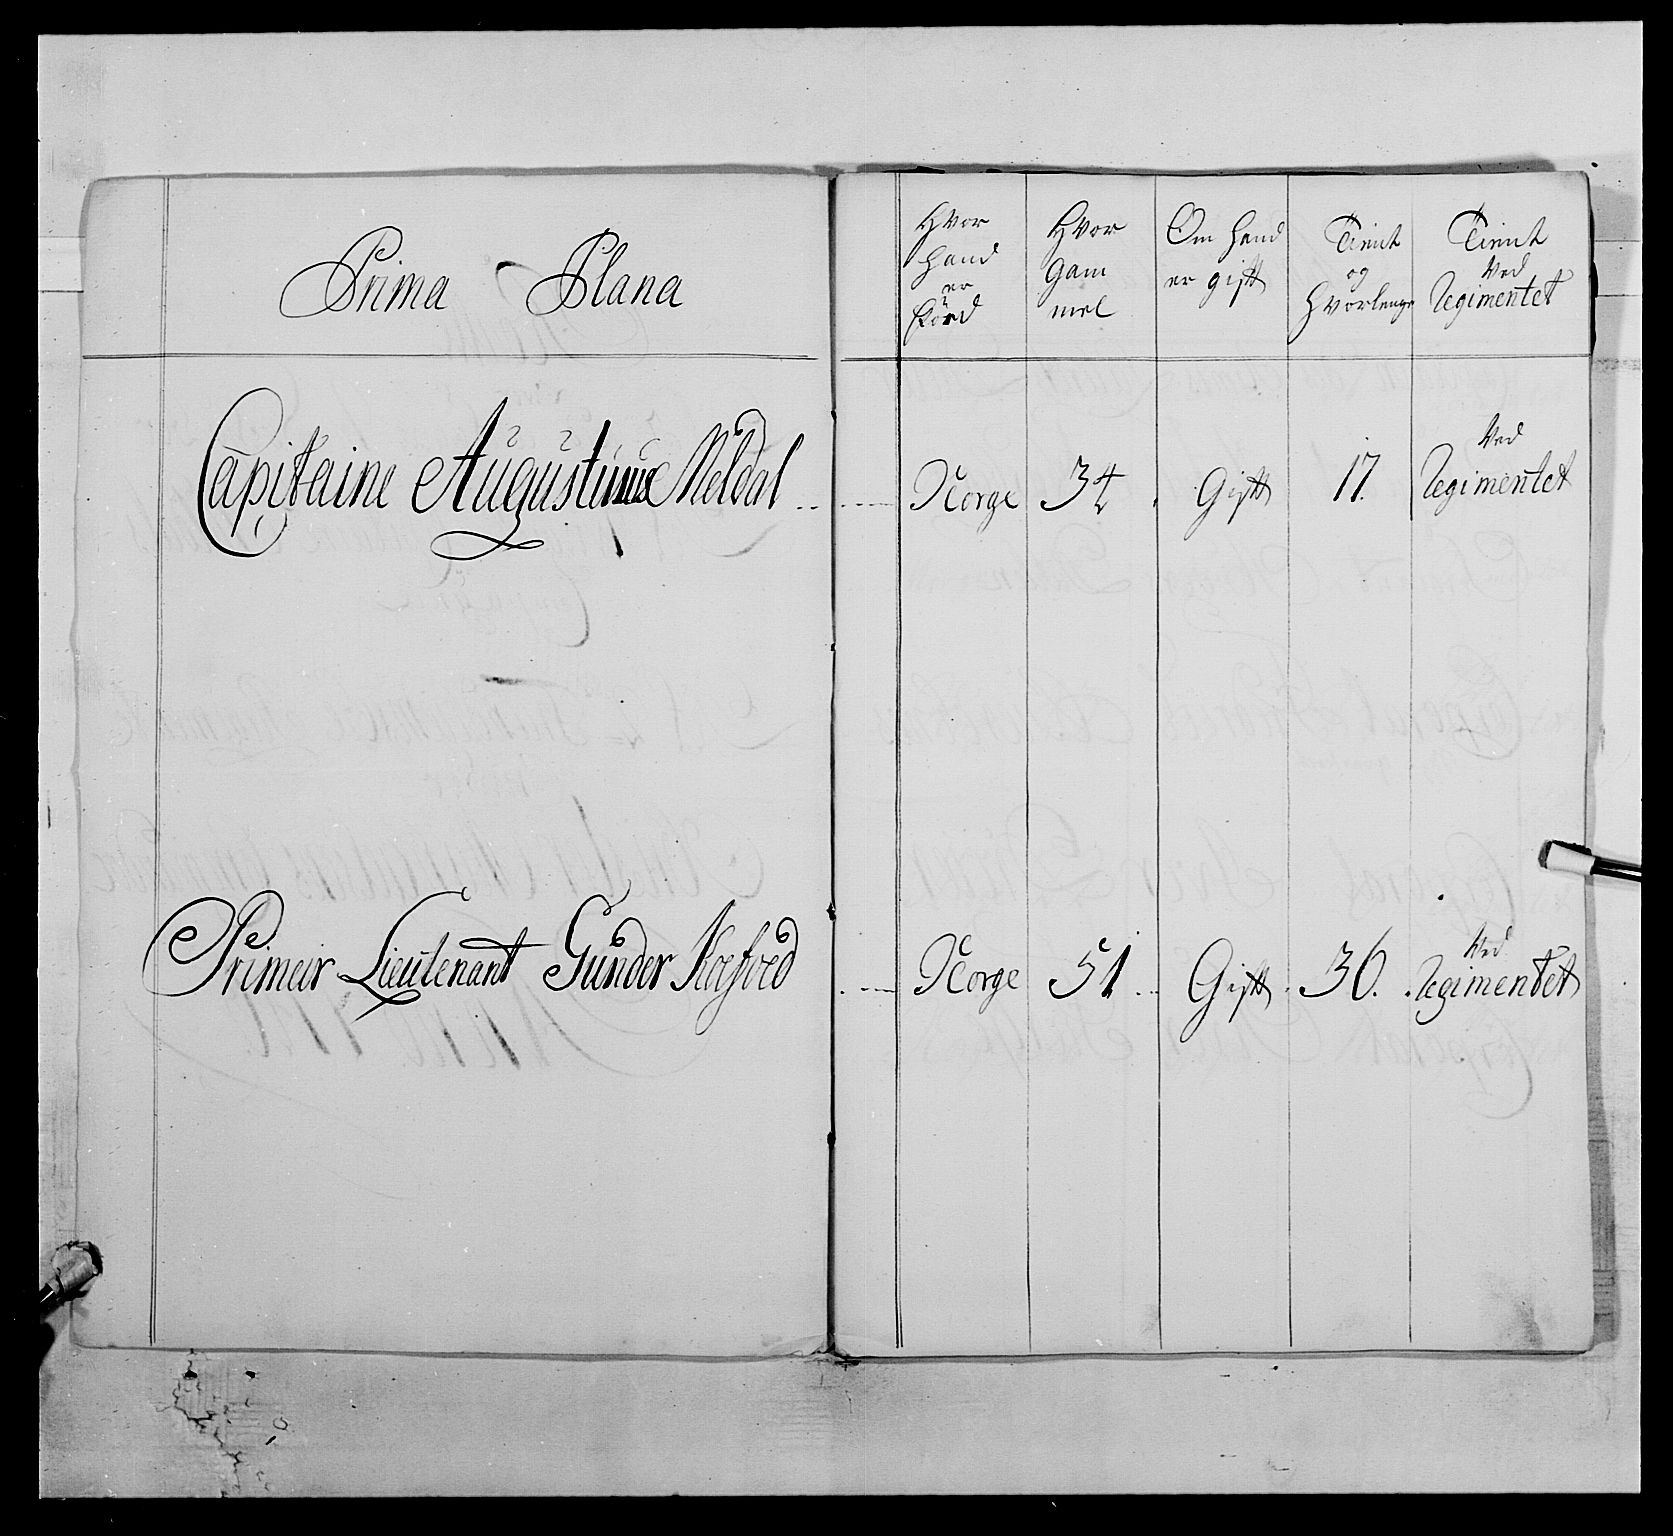 Prima Plana
Hvor
hand
er
föed
Hvor
Gam
mel
Om hand
er gift
Tient
og
Hvorlenge
Tient
Ved
Regimentet
Capitaine Augustinus Meldal
Norge 34 Gift 17. Ved
Regimentet
Primeir Lieutenant Gunder Koefoed
Norge 51 Gift 36. Ved
Regimentet